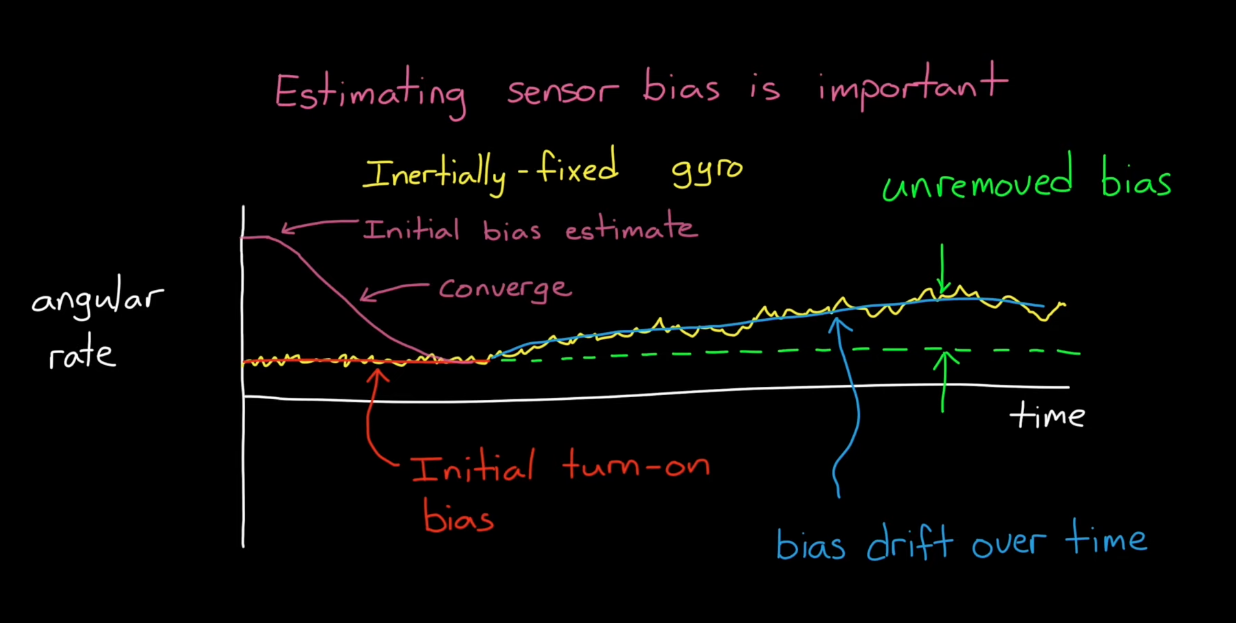 Estimating sensor bias is important
Inertially-fixed gyro
unremoved bias
Initial bias estimate
Converge
angular
rate
time
Initial turn-on
bias
bias drift over time